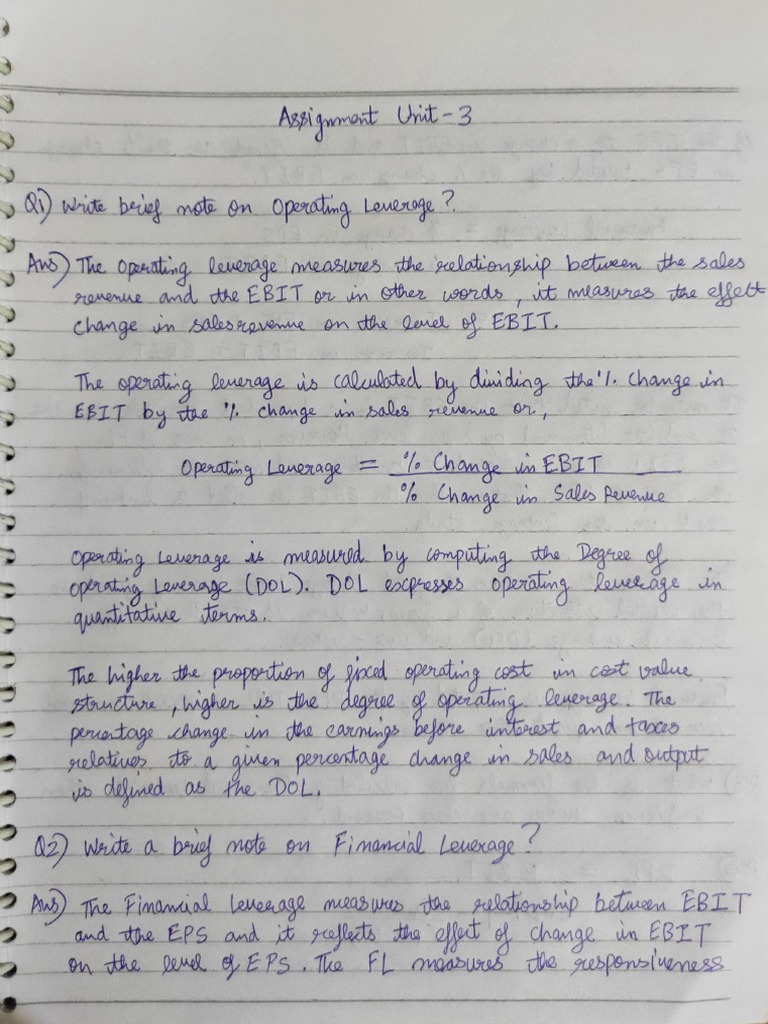 Assignment Unit-3
Q1) Write brief note on Operating Leverage?
Ans) The Operating leverage measures the relationship between the sales
revenue and the EBIT or in other words, it measures the effect
change in sales revenue on the level of EBIT.
The operating leverage is calculated by dividing the % Change in
EBIT by the % change in sales revenue or,
Operating Leverage = % Change in EBIT
% Change in Sales Revenue
Operating Leverage is measured by computing the Degree of
operating Leverage (DOL). DOL expresses operating leverage in
quantitative terms.
The higher the proportion of fixed operating cost in cost value
structure, higher is the degree of operating leverage. The
percentage change in the earnings before interest and taxes
relatives to a given percentage change in sales and output
is defined as the DOL.
Q2) Write a brief note on Financial Leverage?
Ans) The Financial Leverage measures the relationship between EBIT
and the EPS and it reflects the effect of change in EBIT
on the level of EPS. The FL measures the responsiveness